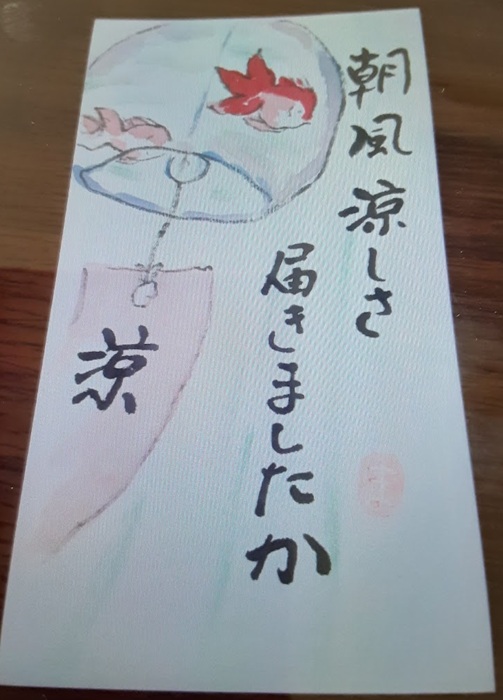 朝風涼しさ
届きましたか
涼